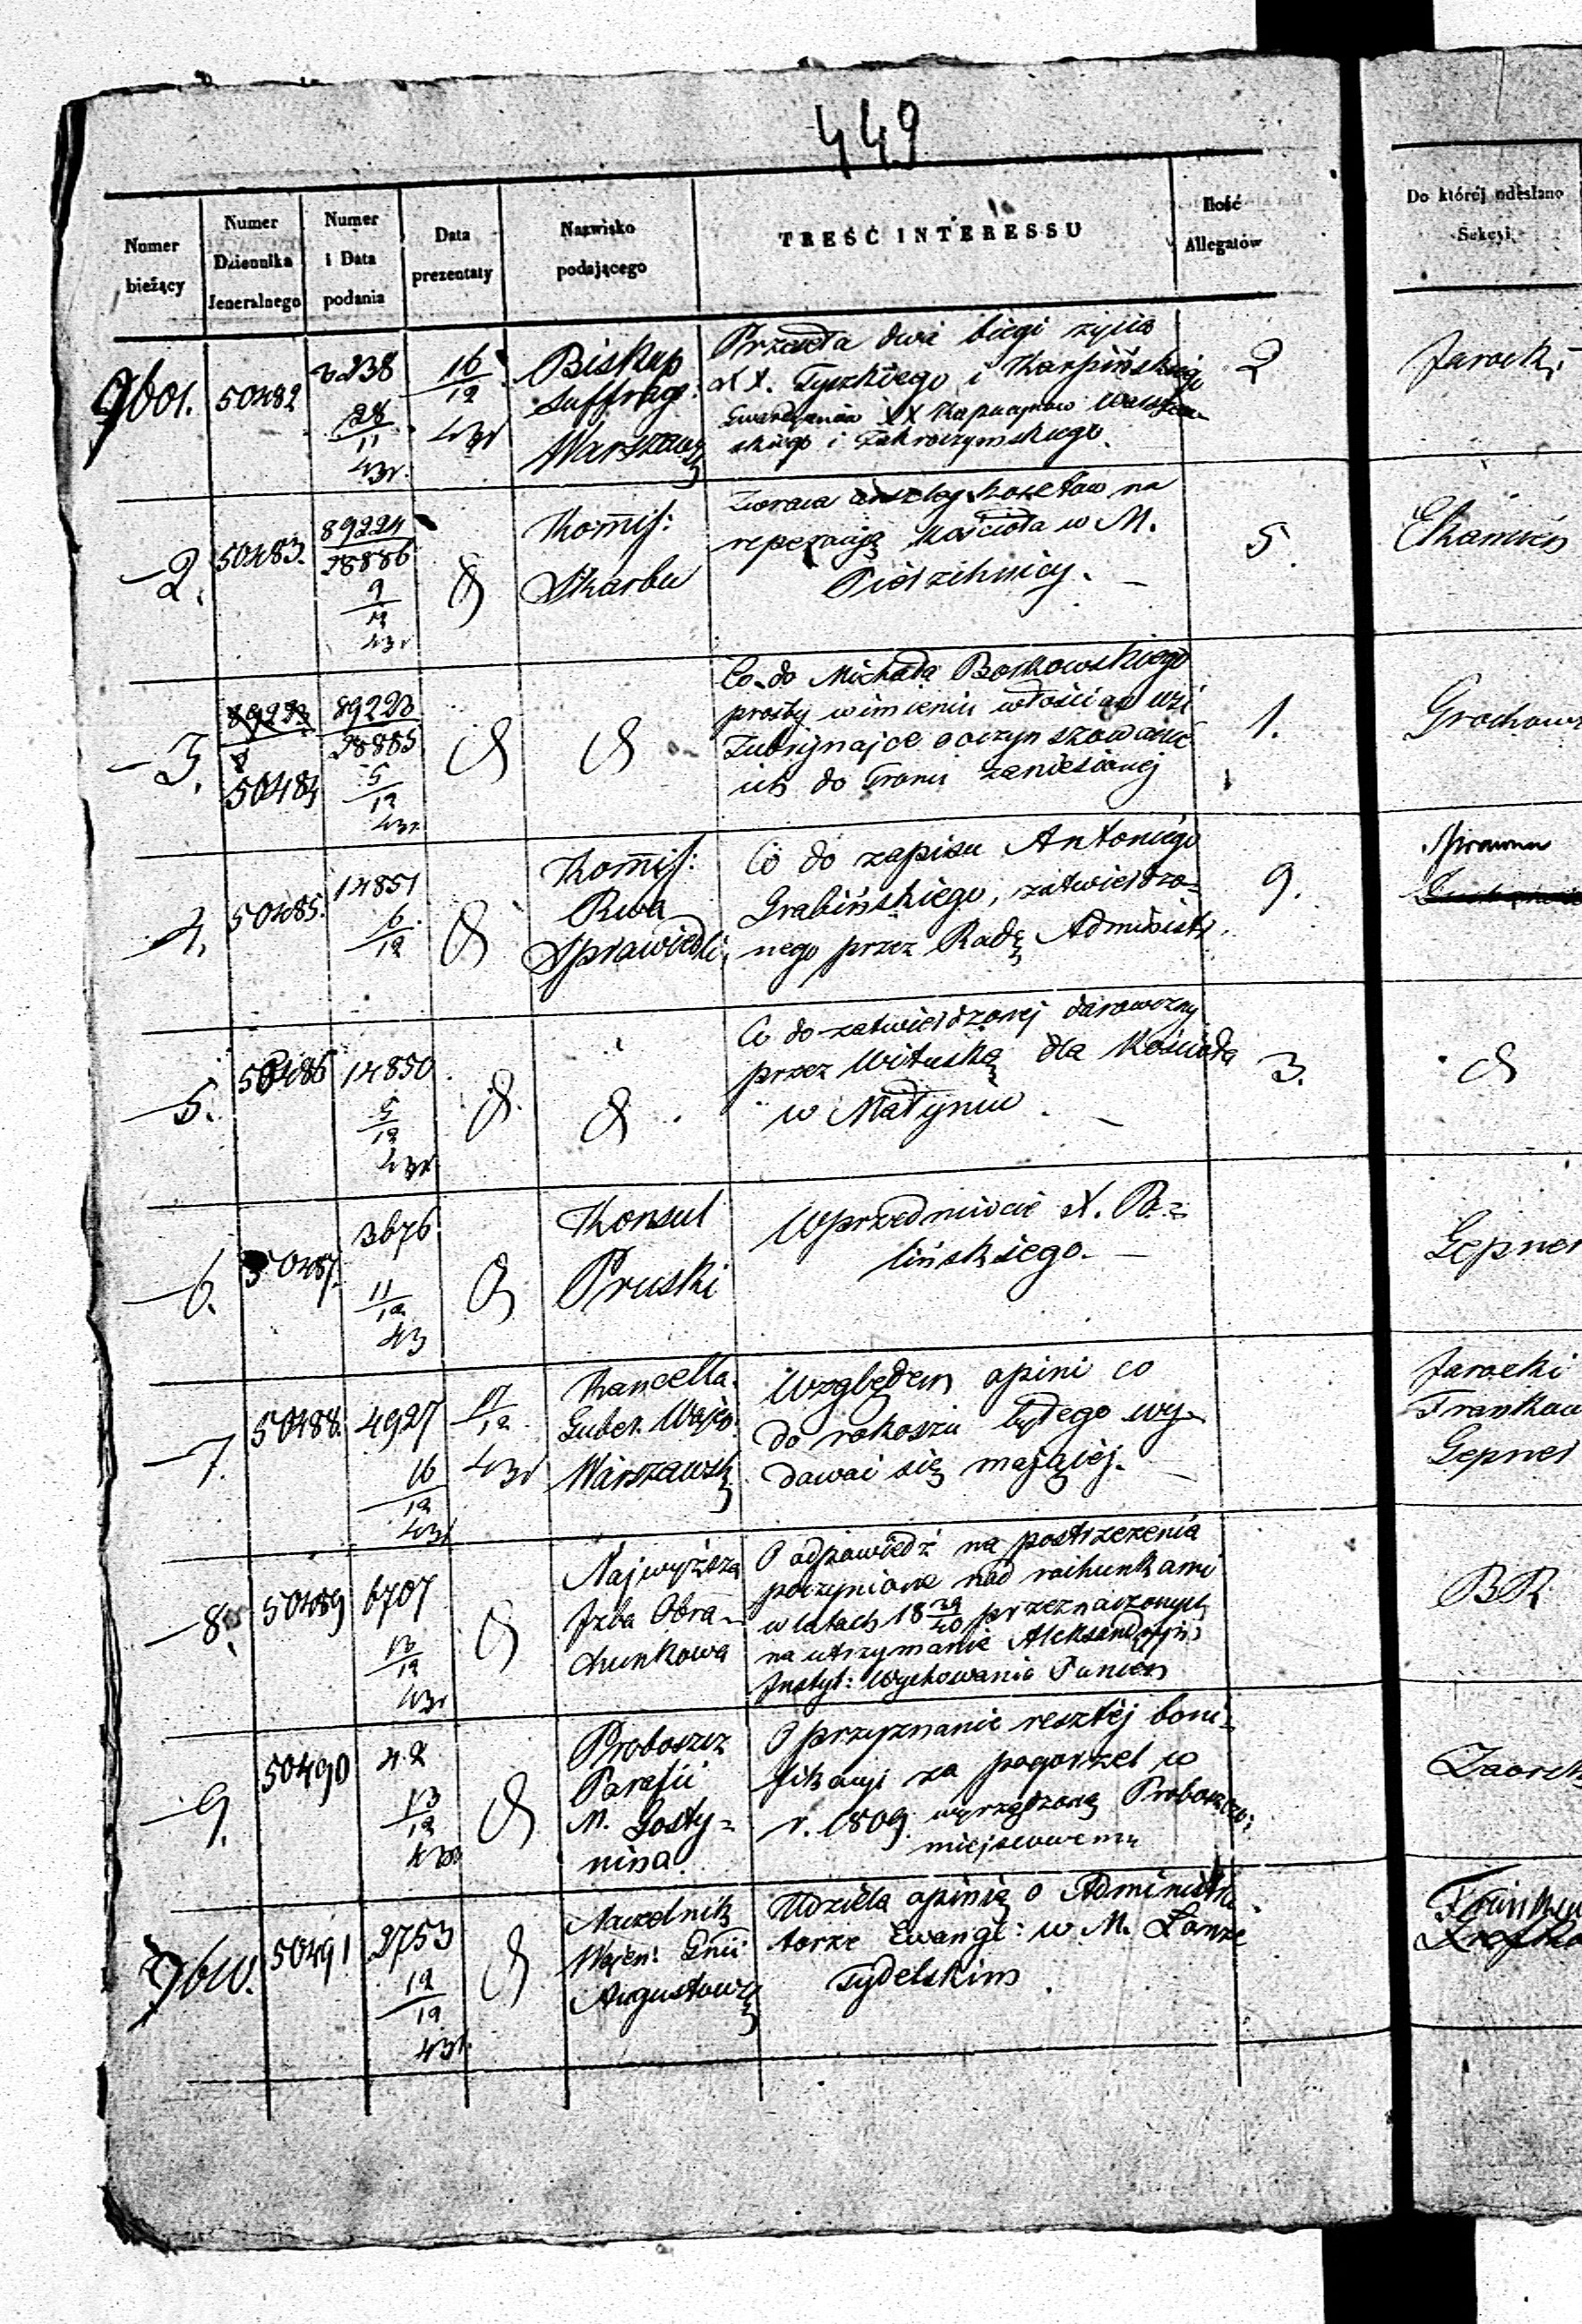 449
Numer bieżący
Numer Dziennika Jeneralnego
Numer i Data podania
Data prezentaty
Nazwisko podającego
TREŚĆ INTERESSU
Ilość Allegatów
Do któréj odesłano Sekcyi
9601. 50482 3238 28/11 43r. 16/12 43r
Biskup
Suffrag:
Warszaws
Przesyła dwa biegi życia
XX. Tyszkiego i Karpińskiego
Gwardyanów XX Kapucynów Warszaw
skiego i Zakroczymskiego.
2
Jarocki
—2. 50483. 89224/28886 9/12 43r
Kommis:
Skarbu
Zwraca anszlag kosztów na
reperacyą Kościoła w M.
5.
—3. 89223 50484 89223/28885 5/12 43r.
Co do Michała Borkowskiego
prośby w imieniu włościan wsi
oczynszowanie
ich do Tronu zaniesionej
1.
—4. 50485. 14851 6/12
Kommis:
Rwa
Sprawiedli.
Co do zapisu Antoniego
Grabińskiego, zatwierdzo-
nego przez Radę Administr.
9.
—5. 50486 14850 5/12 43r
Co do zatwierdzonej darowizny
przez Wituską dla Kościoła
w Matyniu
3.
—6. 50487. 3676. 11/12 43
Konsul
Pruski
W przedmiocie X. Ba-
lińskiego. —
Gepner
—7. 50488. 4927 16/12 43r 17/12 43r
Kancella.
Guber. Wojen.
Warszawsk
Względem opini co
do rokoszu byłego wy-
dawać się mającej.
Jarocki
Gepner
—8. 50489 6707 13/12 43r
Najwyższa
Izba Obra-
chunkowa
O odpowiedź na postrzeżenia
poczynione nad rachunkami
w latach 18 39/40 przeznaczonych
na utrzymanie Aleksandryjs:
Instyt: Wychowania Panien
BR
—9. 50490 42 13/12 43r
Proboszcz
Parafii
M. Gosty-
nina.
O przyznanie resztej boni-
fikacyi za pogorzel w
r. 1809. wyrządzoną Proboszczo:
miejscowemu
9610. 50491 2753 12/12 43r.
Naczelnik
Wojen: Gnii
Augustows
Udziela opinią o Administra
torze Ewangl: w M.